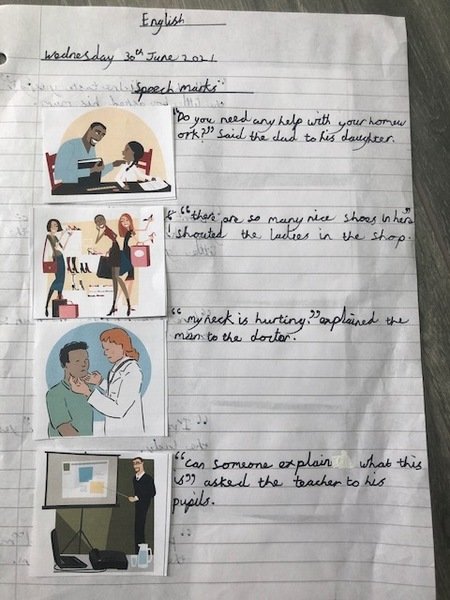 English
Wednesday 30th June 2021
Speech marks
"Do you need any help with your homew
ork?" Said the dad to his daughter.
"there are so many nice shoes in here"
shouted the ladies in the shop.
"my neck is hurting." explained the
man to the doctor.
"can someone explain what this
is" asked the teacher to his
pupils.